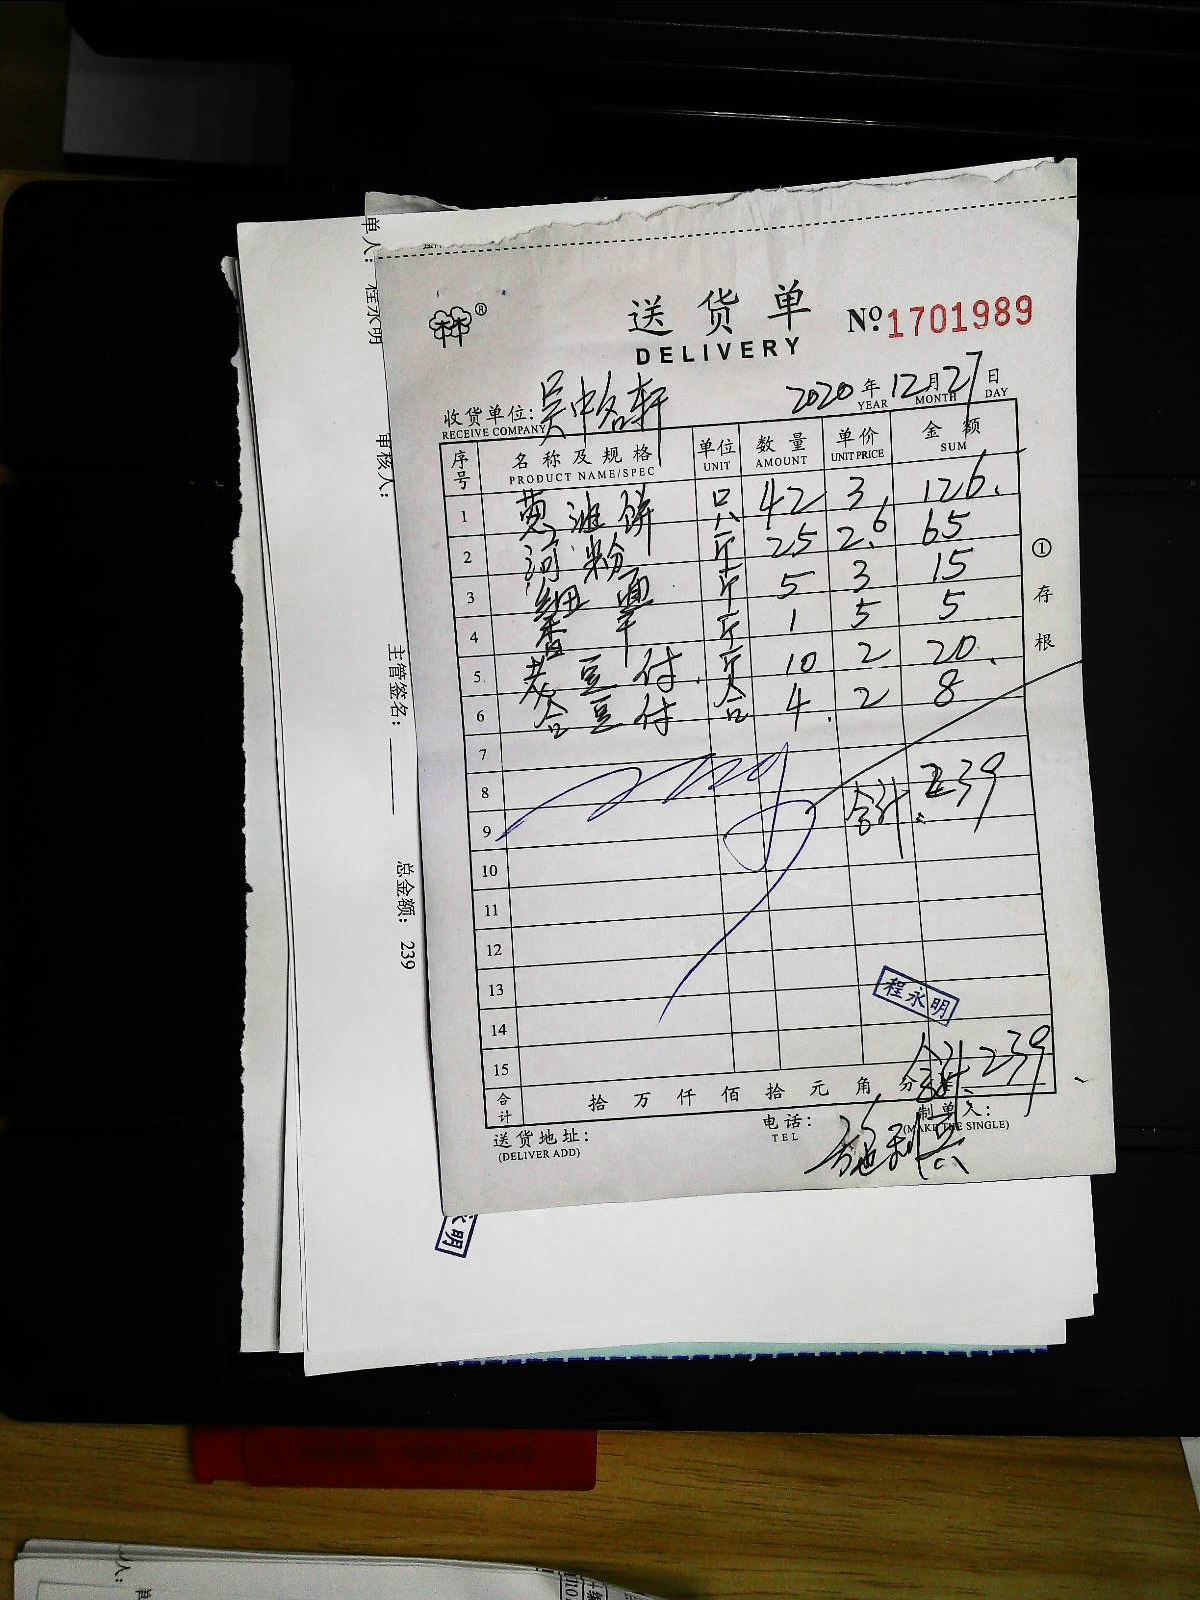 送货单
DELIVERY
№1701989
收货单位:吴中名轩
RECEIVE COMPANY
2020年12月27日
YEAR MONTH DAY
序号 名称及规格 单位 数量 单价 金额
PRODUCT NAME/SPEC UNIT AMOUNT UNIT PRICE SUM
1 饼 只 42 3. 126.
2 河粉 斤 25 2.6 65
3 细面 斤 5 3 15
4 香干 斤 1 5 5
5 老豆付. 斤 10 2 20.
6 合豆付 合 4. 2 8
7
8 合计: 239
9
10
11
12
13
14
15
程永明
合计. 239
合计 拾 万 仟 佰 拾 元 角 分
送货地址:
(DELIVER ADD)
电话:
TEL
制单人:
(MAKE THE SINGLE)
施利兵
①存根
单人: 程永明
审核人:
主管签名:
总金额: 239
永明